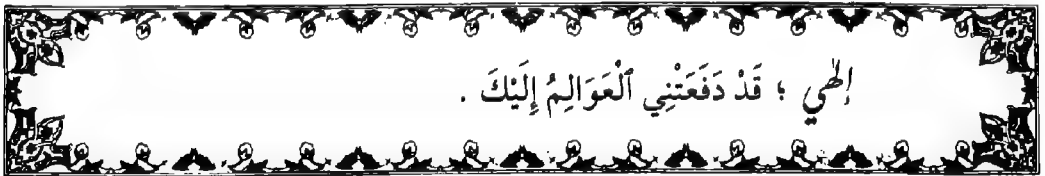 إِلٰهِي ؛ قَدْ دَفَعَتْنِي ٱلْعَوَالِمُ إِلَيْكَ .